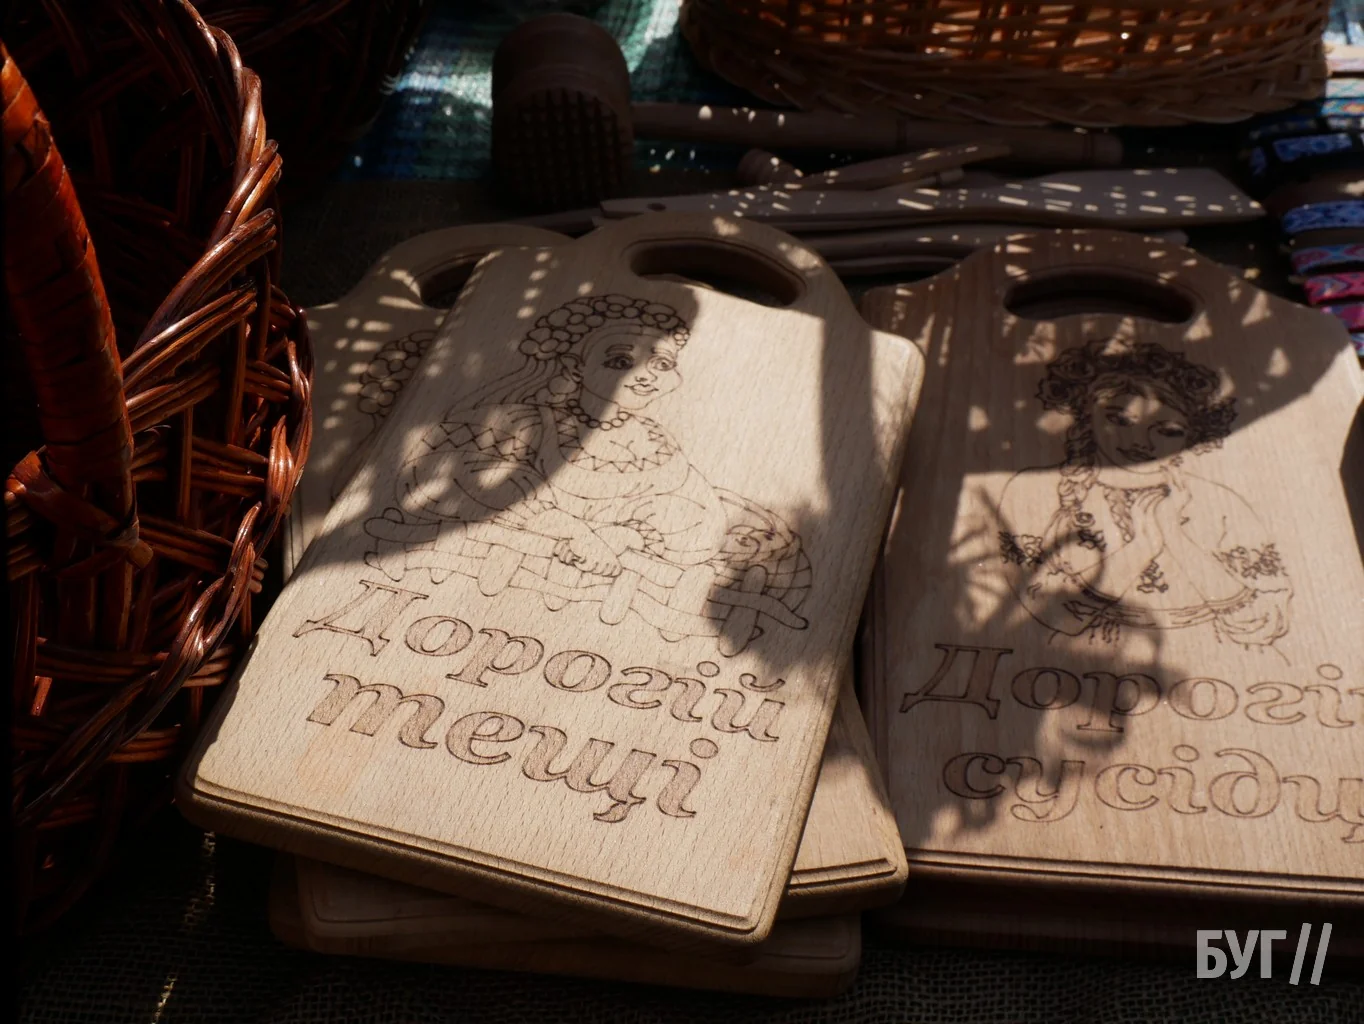 Дорогій
тещі
Дорогі
сусідц
БУГ //